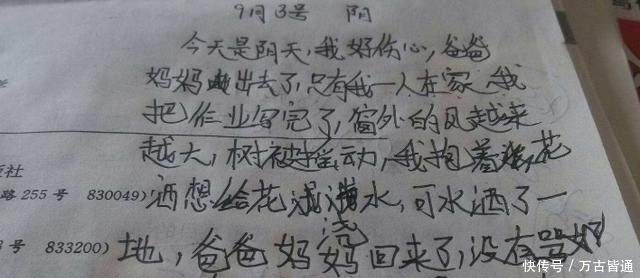 9月3号 阴
今天是阴天,我好伤心,爸爸
妈妈出去了,只有我一人在家.我
把作业写完了,窗外的风越来
越大,树被摇动,我抱着 花
洒想给花浇水,可水洒了一
地,爸爸妈妈回来了,没有骂
社
路 255 号 830049)
号 833200)
快传号 / 万古皆通